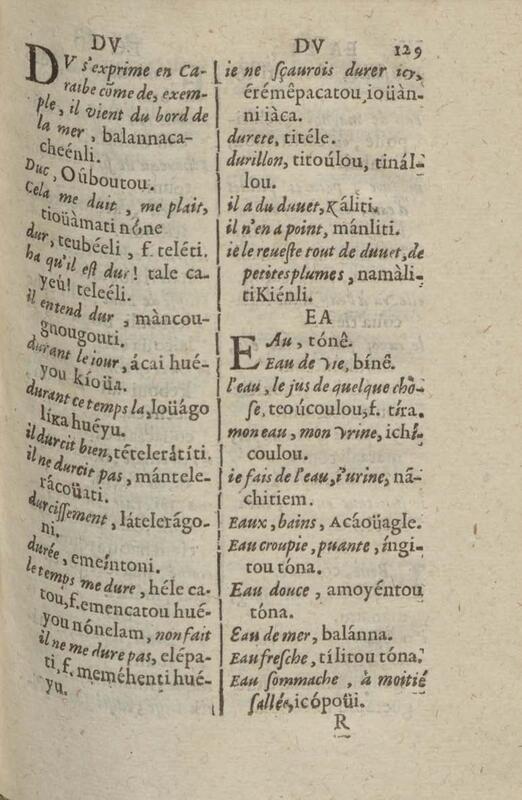 DV
DV s'exprime en Ca-
raibe cõme de, exem-
ple, il vient du bord de
la mer, balannaca-
cheénli.
Duc, Oûboutou.
Cela me duit, me plait,
tioüàmati nóne
dur, teubéeli, f. teléti.
ha qu'il est dur! tale ca-
yeú! teleéli.
il entend dur, màncou-
gnougouti.
durant le iour, ácai hué-
you kíoüa.
durant ce temps la, loüágo
líka huéyu.
il durcit bien, tételerátíti.
il ne durcit pas, mántele-
rácoüati.
durcissement, látelerágo-
ni.
durée, emeíntoni.
le temps me dure, héle ca-
tou, f. emencatou hué-
you nónelam, non fait
il ne me dure pas, elépa-
ti, f. meméhenti hué-
yu.
DV 129
ie ne sçaurois durer icy,
érémêpacatou, ioüàn-
ni iàca.
durete, titéle.
durillon, titoúlou, tinál-
lou.
il a du duuet, Káliti.
il n'en a point, mánliti.
ie le reueste tout de duuet, de
petites plumes, namàli-
tiKiénli.
EA
EAu, tónê.
Eau de vie, bínê.
l'eau, le jus de quelque cho-
se, teoúcoulou, f. tíra.
mon eau, mon vrine, ichí-
coulou.
ie fais de l'eau, i'urine, nã-
chitiem.
Eaux, bains, Acáoüagle.
Eau croupie, puante, íngi-
tou tóna.
Eau douce, amoyéntou
tóna.
Eau de mer, balánna.
Eau fresche, tílitou tóna.
Eau sommache, à moitié
sallée, icópoüi.
R